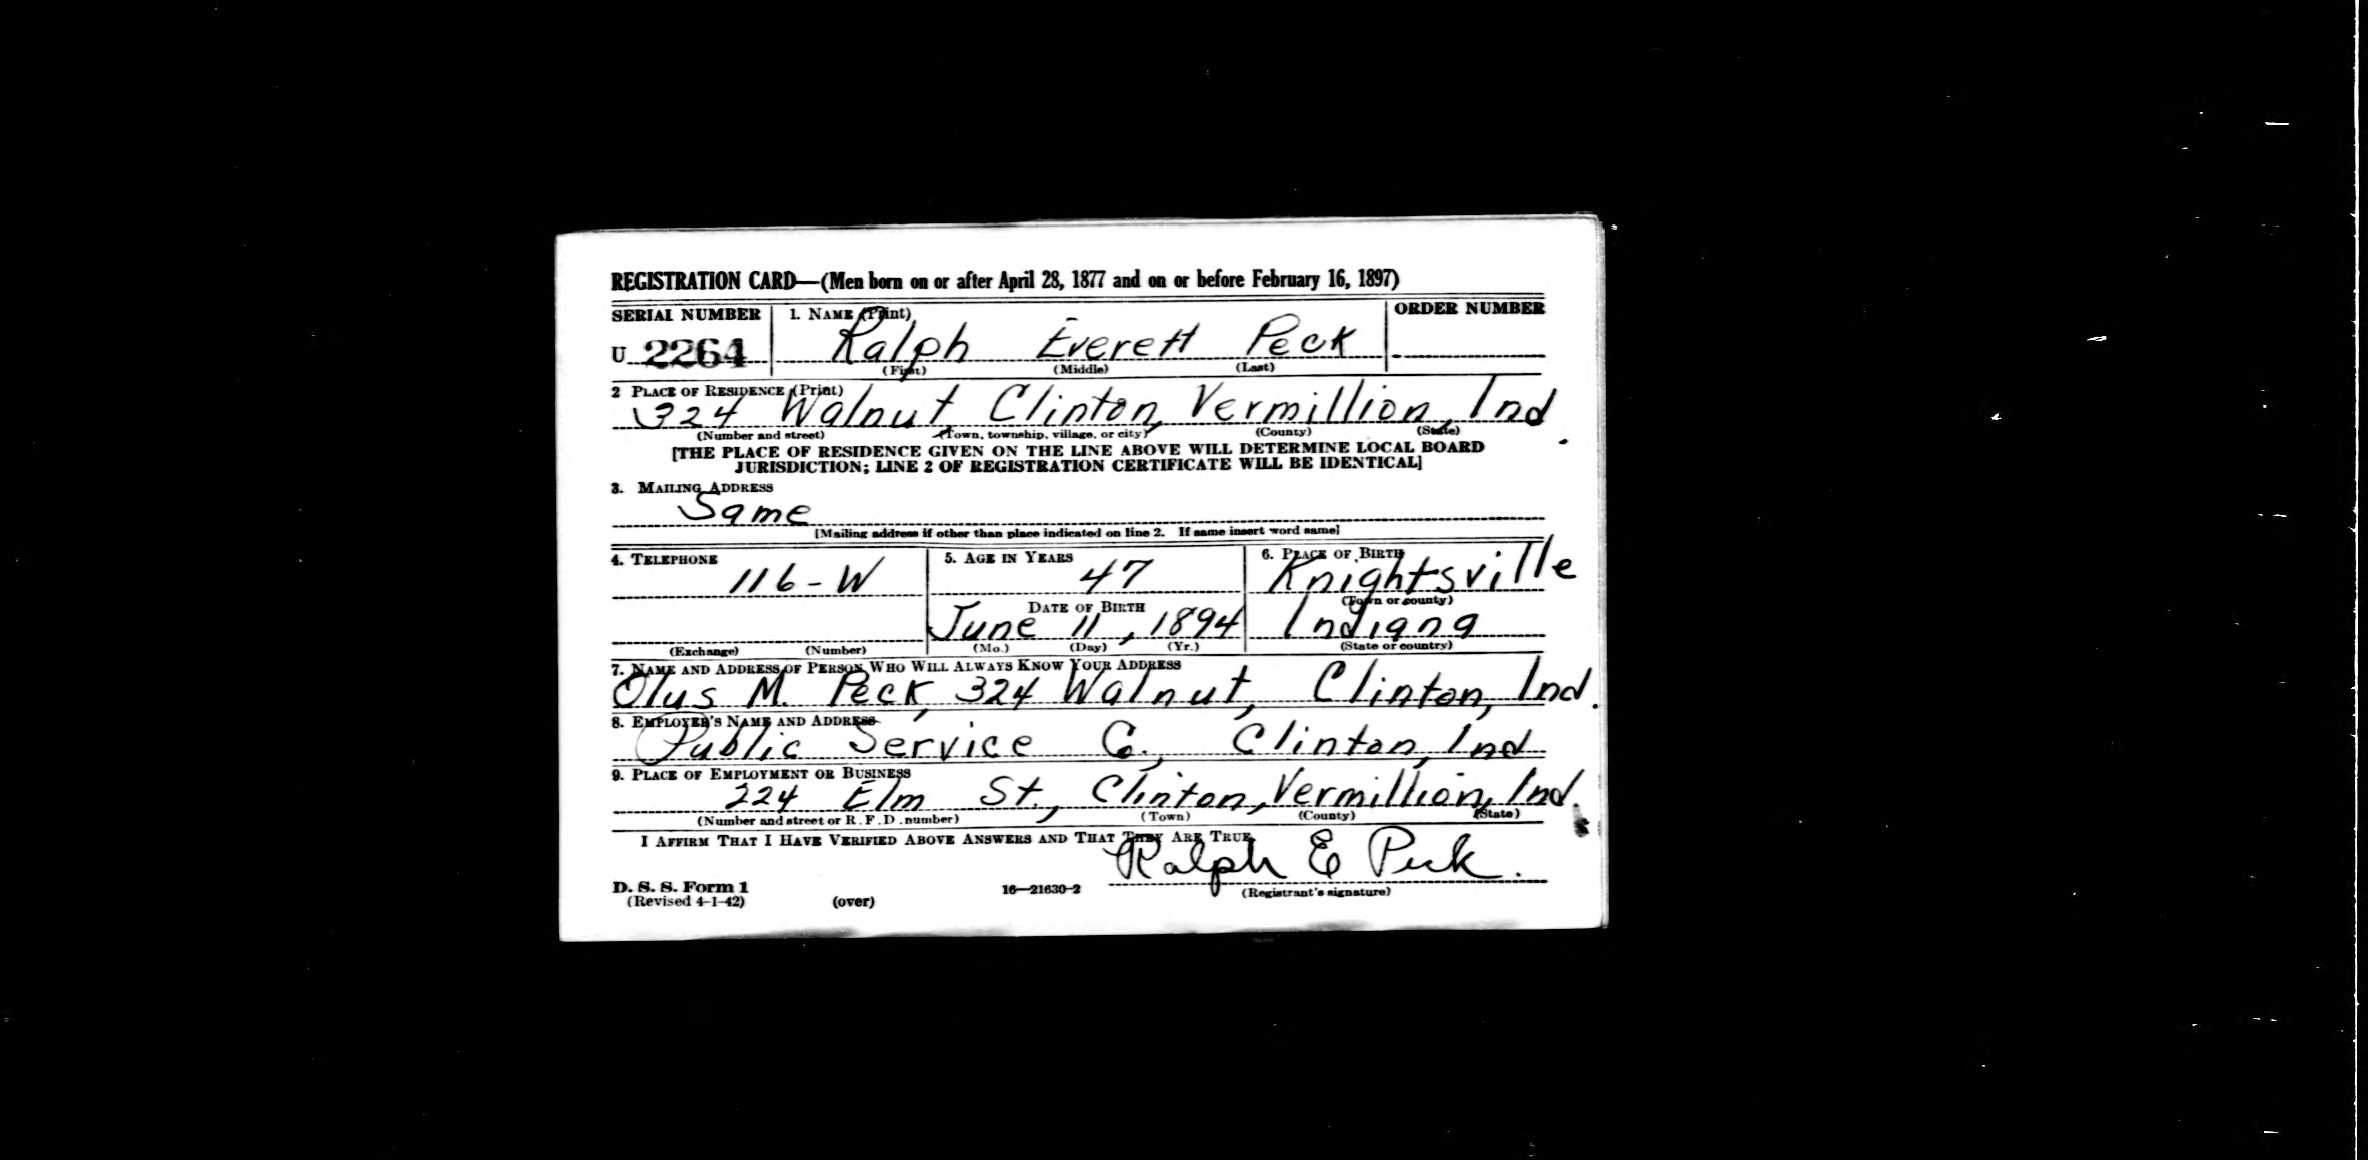 REGISTRATION CARD—(Men born on or after April 28, 1877 and on or before February 16, 1897)
SERIAL NUMBER 1. NAME (Print) ORDER NUMBER
U 2264 Ralph Everett Peck
(First) (Middle) (Last)
2 PLACE OF RESIDENCE (Print)
324 Walnut Clinton, Vermillion, Ind
(Number and street) (Town, township, village, or city) (County) (State)
[THE PLACE OF RESIDENCE GIVEN ON THE LINE ABOVE WILL DETERMINE LOCAL BOARD
JURISDICTION; LINE 2 OF REGISTRATION CERTIFICATE WILL BE IDENTICAL]
3. MAILING ADDRESS
Same
[Mailing address if other than place indicated on line 2. If same insert word same]
4. TELEPHONE 5. AGE IN YEARS 6. PLACE OF BIRTH
116-W 47 Knightsville
DATE OF BIRTH (Town or county)
June 11, 1894 Indiana
(Exchange) (Number) (Mo.) (Day) (Yr.) (State or country)
7. NAME AND ADDRESS OF PERSON WHO WILL ALWAYS KNOW YOUR ADDRESS
Olus M. Peck, 324 Walnut, Clinton, Ind.
8. EMPLOYER'S NAME AND ADDRESS
Public Service Co., Clinton, Ind
9. PLACE OF EMPLOYMENT OR BUSINESS
224 Elm St., Clinton, Vermillion, Ind.
(Number and street or R. F. D. number) (Town) (County) (State)
I AFFIRM THAT I HAVE VERIFIED ABOVE ANSWERS AND THAT THEY ARE TRUE.
Ralph E Peck.
D. S. S. Form 1 16—21630-2 (Registrant's signature)
(Revised 4-1-42) (over)